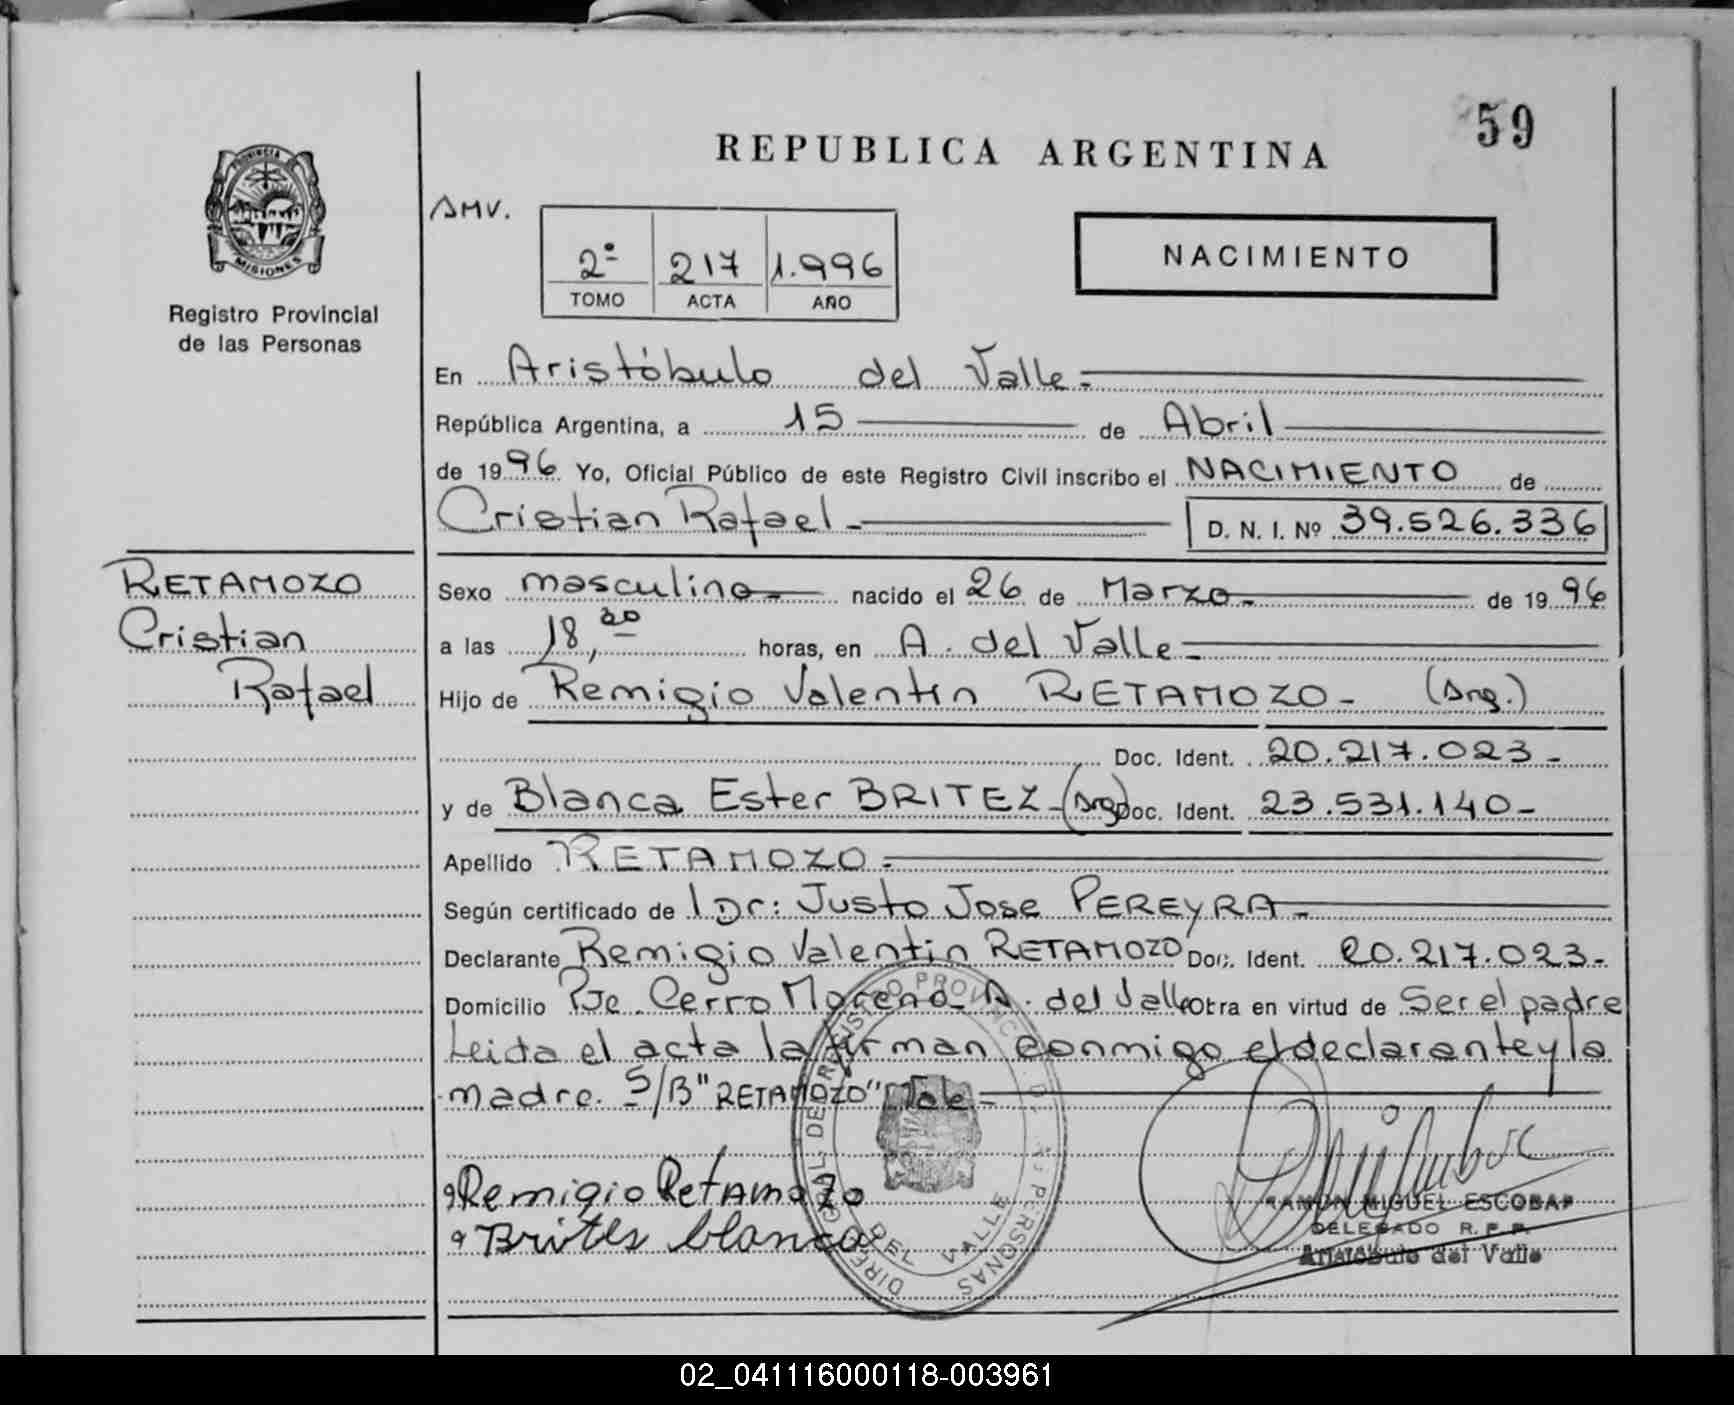 59
REPUBLICA ARGENTINA
PROVINCIA DE
MISIONES
Registro Provincial
de las Personas
AMV.
2º 217 1.996
TOMO ACTA AÑO
NACIMIENTO
En Aristóbulo del Valle.-
República Argentina, a 15 de Abril
de 1996 Yo, Oficial Público de este Registro Civil inscribo el NACIMIENTO de
Cristian Rafael.- D. N. I. Nº 39.526.336
RETAMOZO
Cristian
Rafael
Sexo masculino.- nacido el 26 de Marzo.- de 1996
a las 18, horas, en A. del Valle.-
Hijo de Remigio Valentin RETAMOZO.- (Arg.)
Doc. Ident. 20.217.023-
y de Blanca Ester BRITEZ-(Arg) Doc. Ident. 23.531.140-
Apellido RETAMOZO.-
Según certificado de l Dr: Justo Jose PEREYRA.-
Declarante Remigio Valentin RETAMOZO Doc. Ident. 20.217.023-
Domicilio Pje. Cerro Moreno- A. del Valle Obra en virtud de Ser el padre
Leida el acta la firman conmigo el declarante y la
madre. S/B "RETAMOZO" Vale.-
Remigio RetAmozo
Brites blanca
DIRECC. GRAL. DEL REGISTRO PROVINCIAL DE LAS PERSONAS
DEL VALLE
RAMON MIGUEL ESCOBAR
DELEGADO R. P. P.
Aristóbulo del Valle
02_041116000118-003961